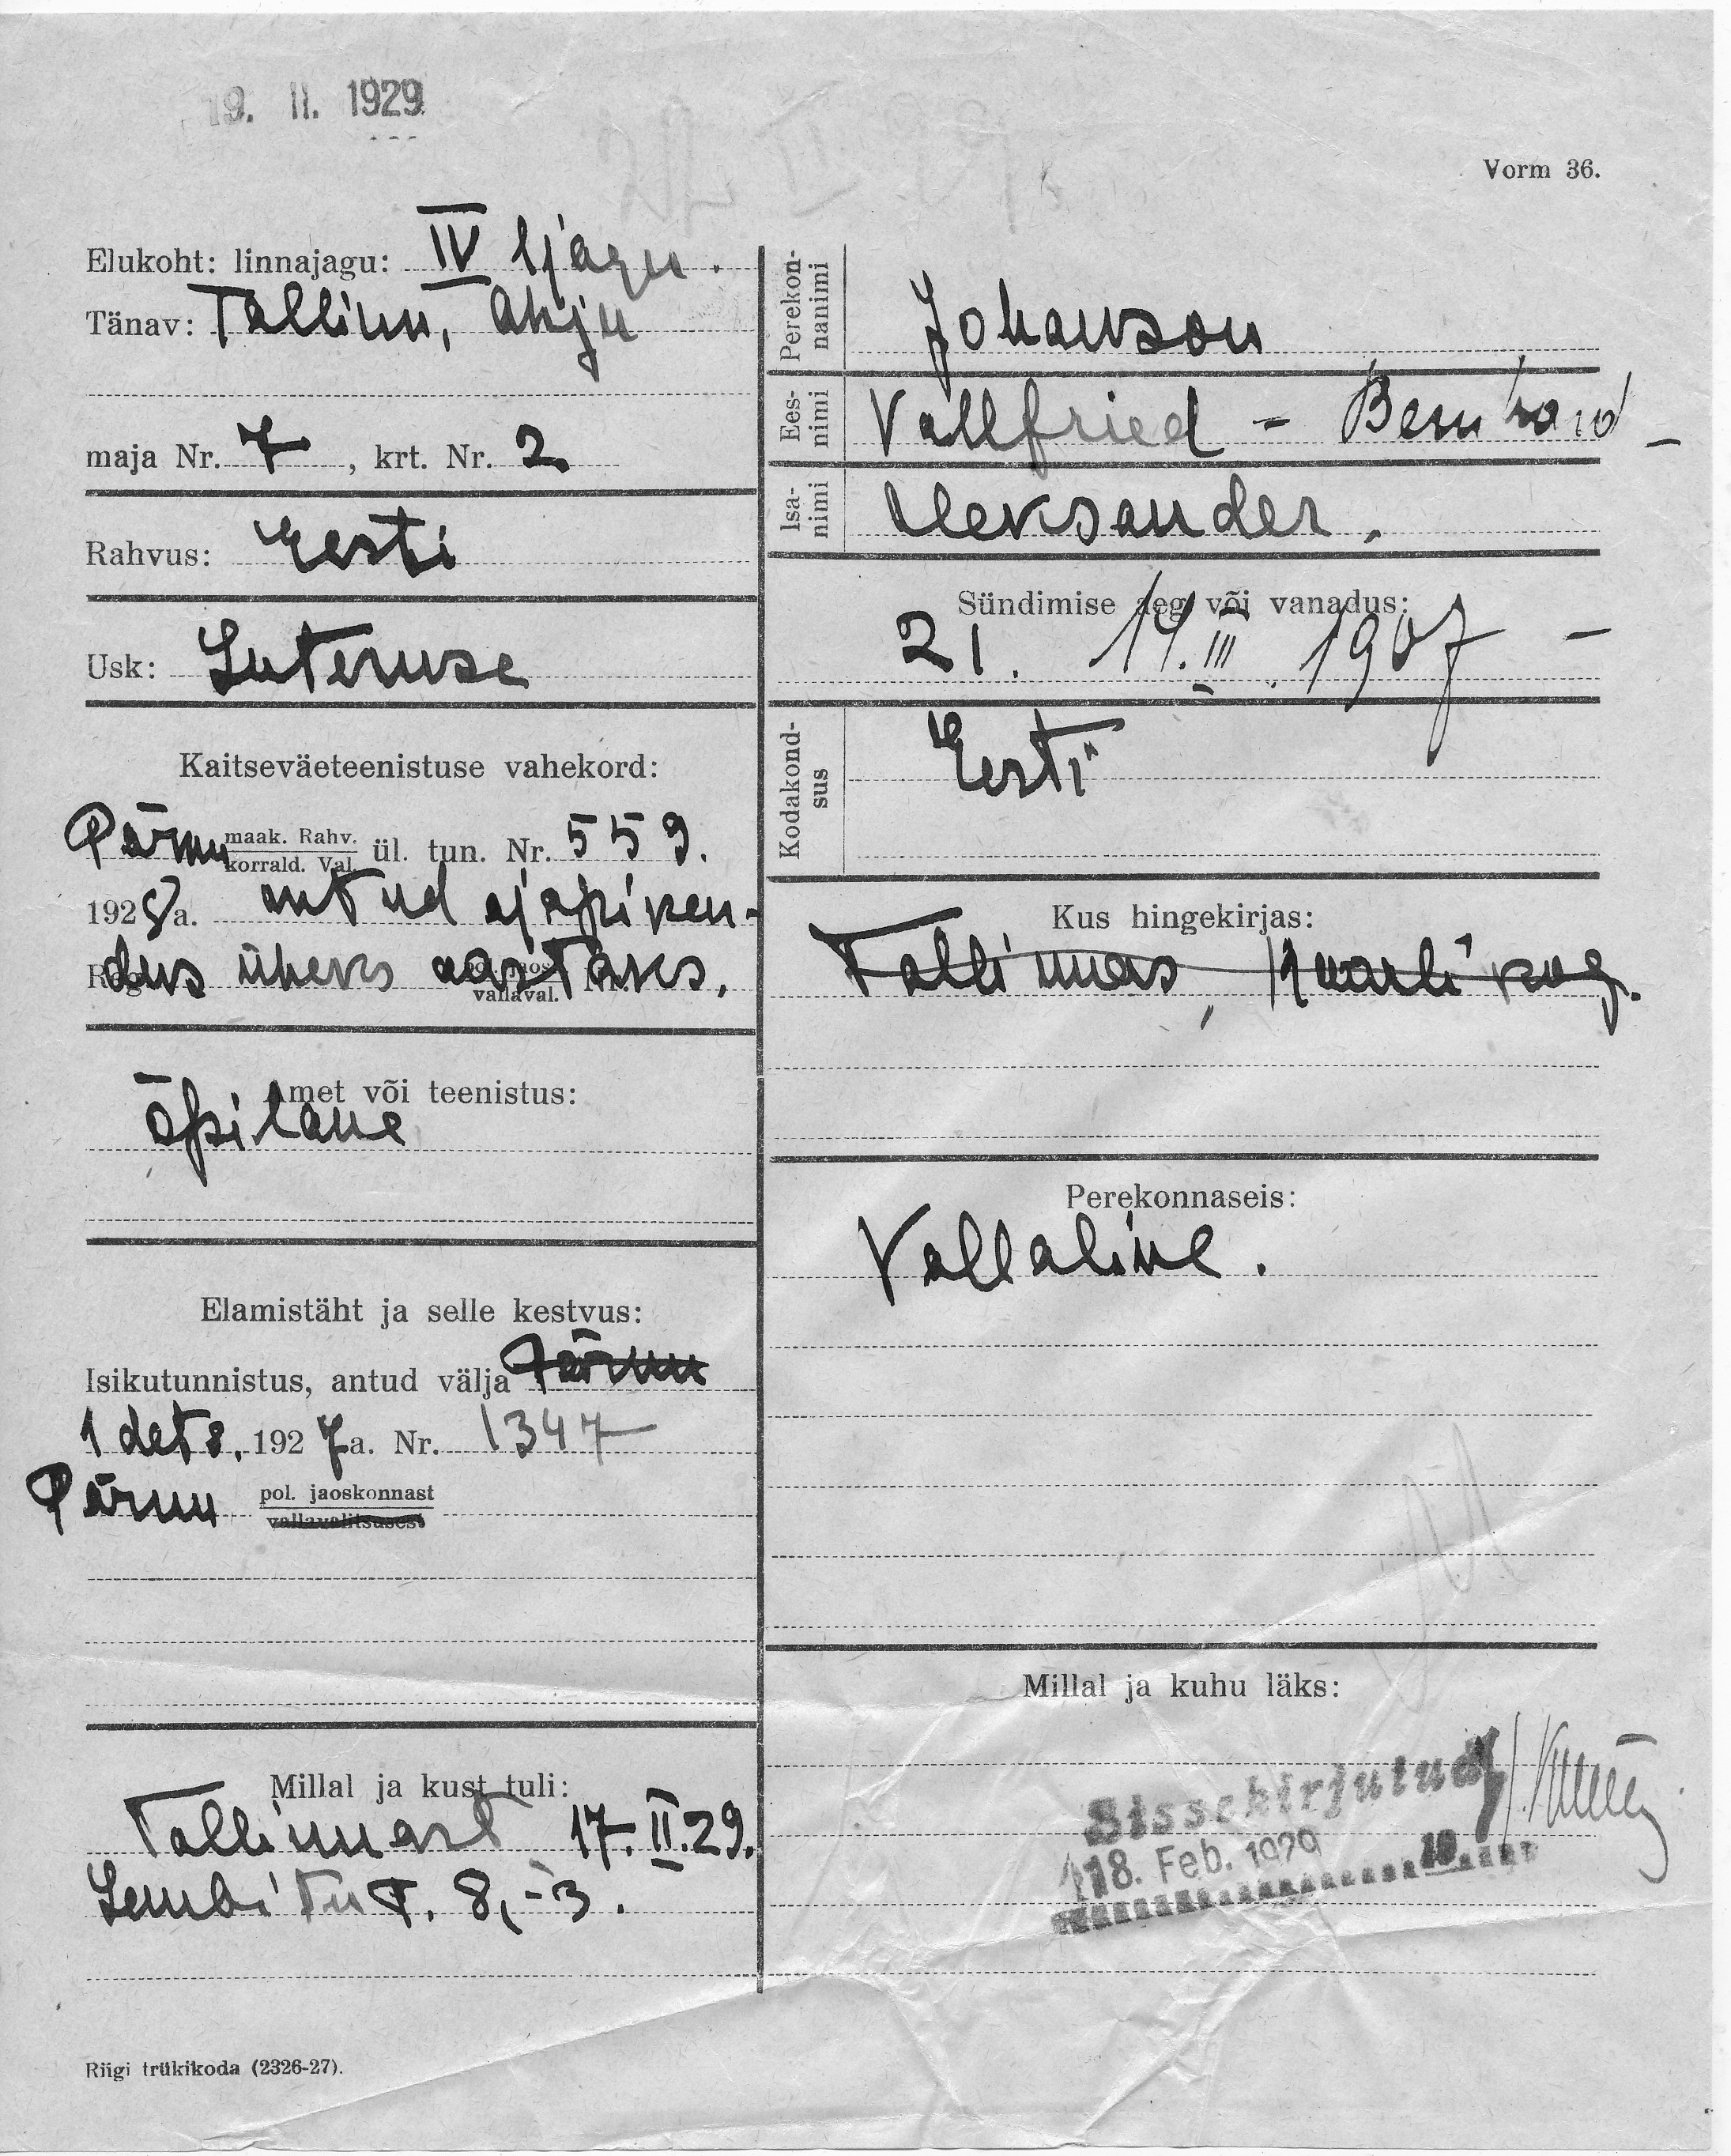 19. II. 1929
Vorm 36.
Elukoht: linnajagu: IV ljagu.
Tänav: Tallinn, Ahju
maja Nr. 7, krt. Nr. 2
Rahvus: Eesti
Usk: Luteruse
Kaitseväeteenistuse vahekord:
Pärnu maak. Rahv.
korrald. Val. ül. tun. Nr. 559.
1928 a. antud ajapiken-
dus üheks aastaks.
vallaval.
Amet või teenistus:
õpilane
Elamistäht ja selle kestvus:
Isikutunnistus, antud välja Pärnu
1 dets. 1927 a. Nr. 1347
Pärnu pol. jaoskonnast
vallavalitsusest
Millal ja kust tuli:
Tallinnast 17. II. 29.
Lembitu t. 8,-3.
Riigi trükikoda (2326-27).
Perekon-
nanimi
Johanson
Ees-
nimi
Vallfried - Bernhard -
Isa-
nimi
Aleksander.
Sündimise aeg või vanadus:
21. 14. III. 1907 -
Kodakond-
sus
Eesti
Kus hingekirjas:
Tallinnas, Kaarli kog.
Perekonnaseis:
Vallaline.
Millal ja kuhu läks:
Sissekirjutud
18. Feb. 1929